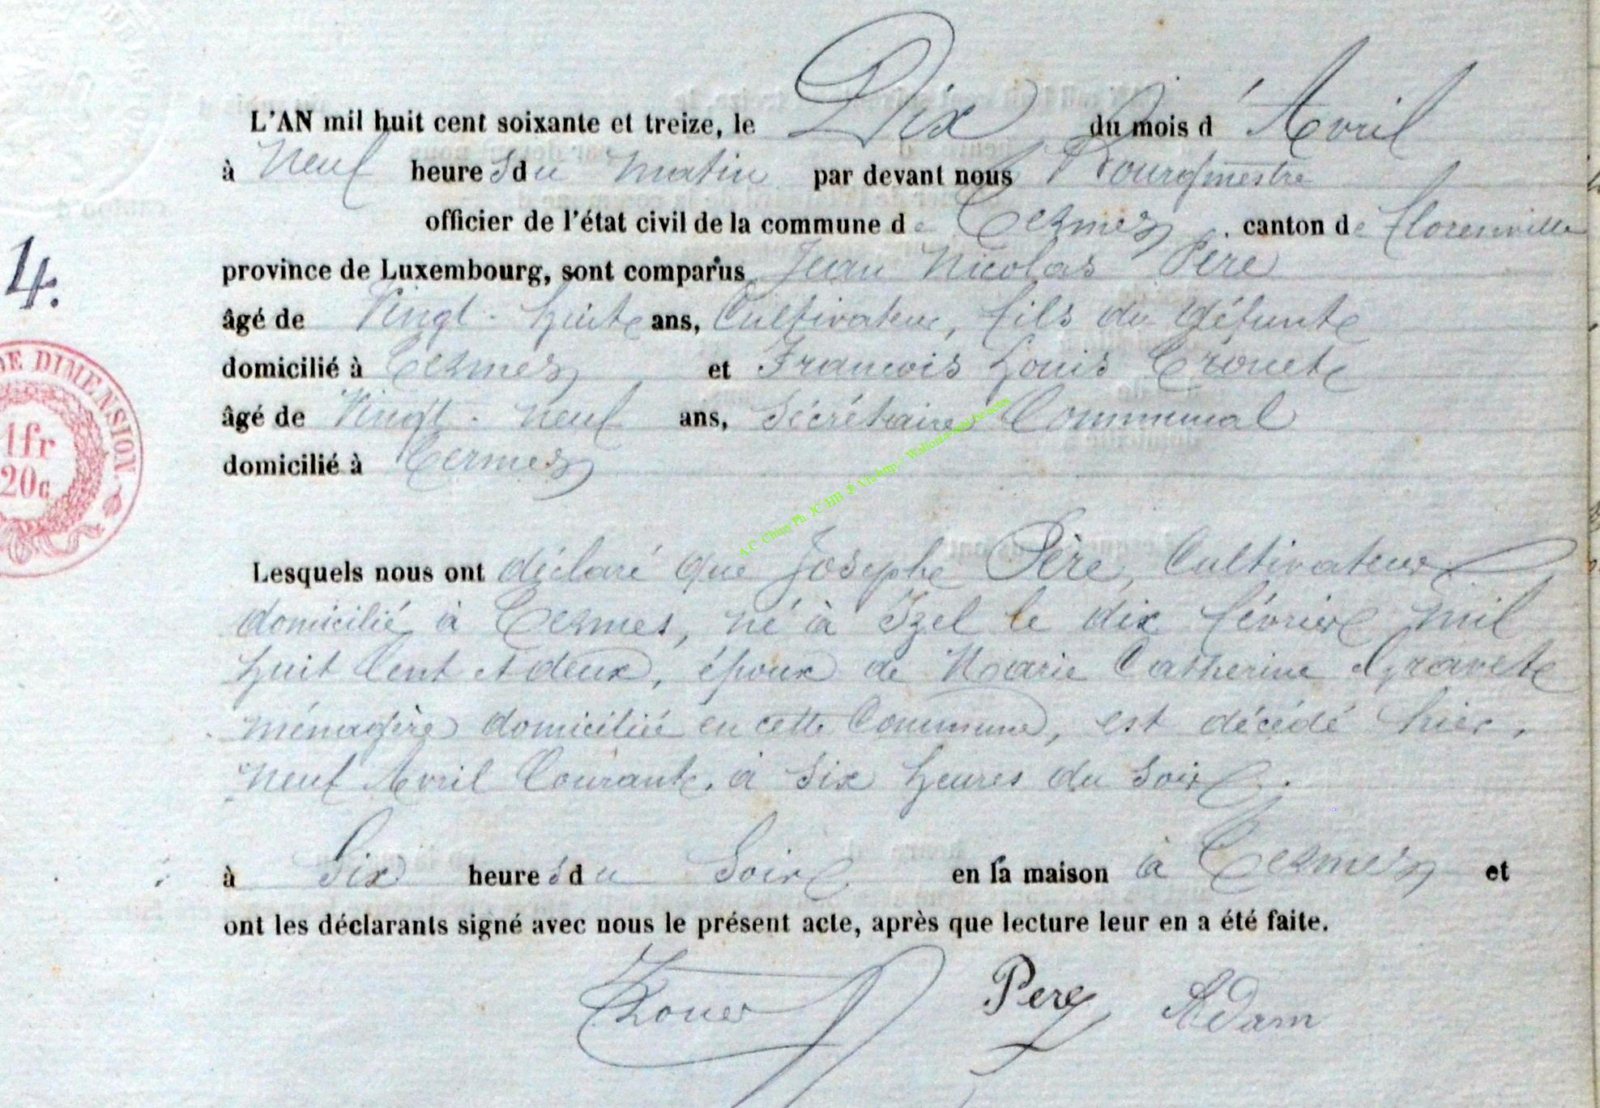 L'AN mil huit cent soixante et treize, le Dix du mois d'Avril
à Neuf heures du matin par devant nous Bourgmestre
officier de l'état civil de la commune de Termes, canton de Florenville
province de Luxembourg, sont comparus Jean Nicolas Père
4.
âgé de Vingt-huit ans, Cultivateur, fils du défunt
domicilié à Termes et François Louis
âgé de Vingt-neuf ans, Sécrétaire Communal
domicilié à Termes
DE DIMENSION
1fr
20c
Lesquels nous ont déclaré que Josephe Père, Cultivateur
domicilié à Termes, né à Izel le dix février mil
huit Cent et deux, époux de Marie Catherine
ménagère domiciliée en cette Commune, est décédé hier,
neuf Avril Courant, à Six heures du Soir.
à Six heures du Soir en la maison à Termes et
ont les déclarants signé avec nous le présent acte, après que lecture leur en a été faite.
Pere Adam